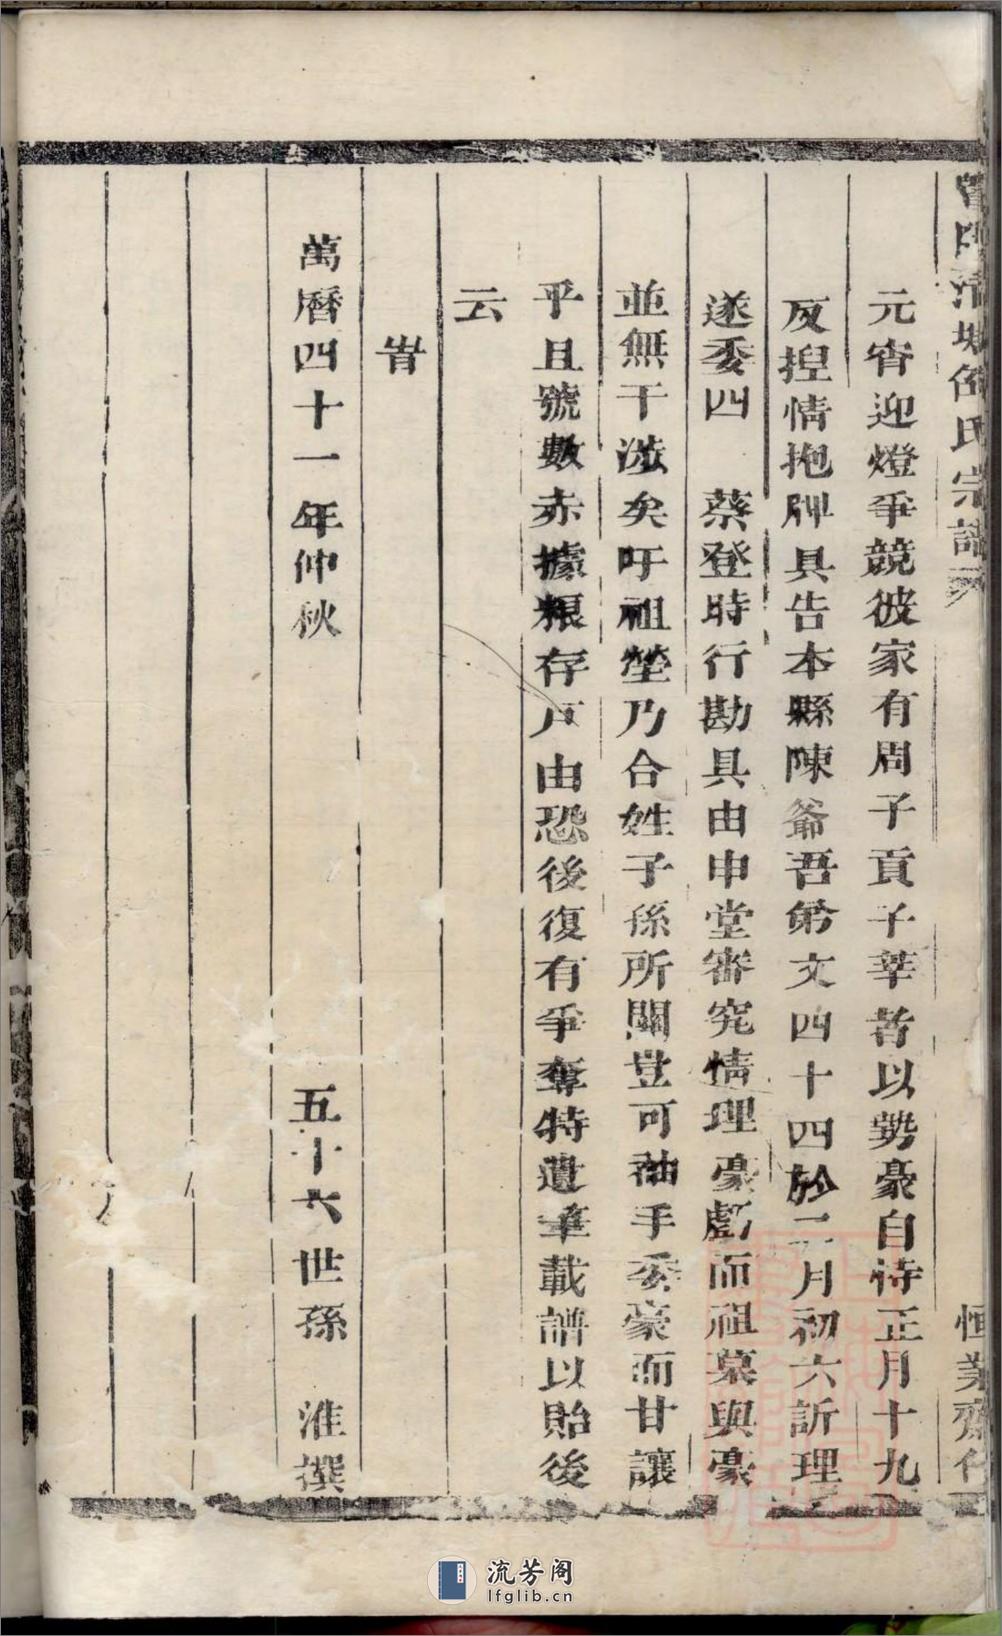 清塘 氏宗譜 恒業齋
元宵迎燈爭競彼家有周子貢子莘者以勢豪自恃正月十九
反揑情抱牌具告本縣陳爺吾弟文四十四於二月初六訴理
遂委四 蔡登時行勘具由申堂審究情理豪虧而祖墓與豪
並無干涉矣吁祖塋乃合姓子孫所關豈可袖手委豪而甘讓
乎且號數赤據粮存戶由恐後復有爭奪特遺筆載譜以貽後
云
旹
萬曆四十一年仲秋 五十六世孫 淮撰
流芳阁
lfglib.cn